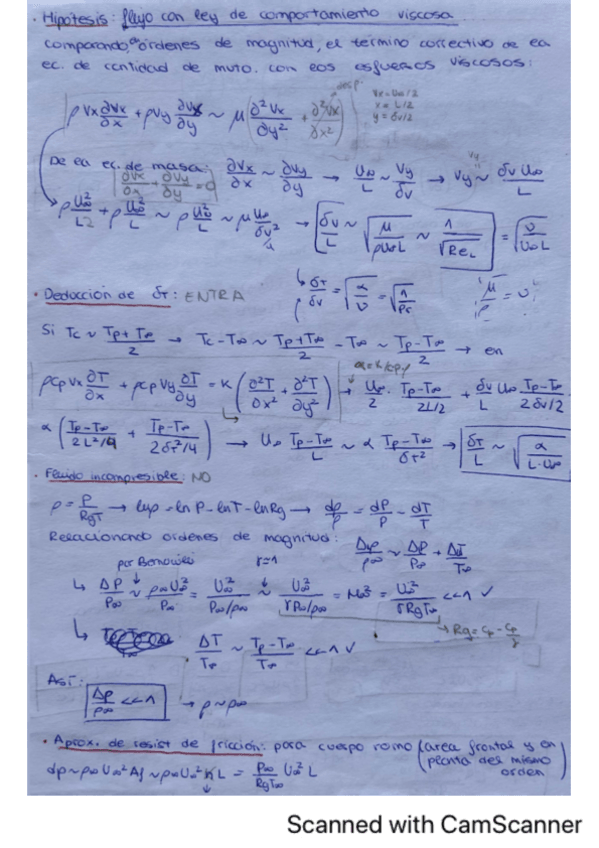 · Hipótesis: flujo con ley de comportamiento viscosa
comparando órdenes de magnitud, el término correctivo de la
ec. de cantidad de mvto. con los esfuerzos viscosos:
ρ Vx ∂Vx/∂x + ρ Vy ∂Vx/∂y ~ μ (∂²Vx/∂y² + ∂²Vx/∂x²)
Vx = U∞/2
x = L/2
y = δv/2
De la ec. de masa: ∂Vx/∂x ~ ∂Vy/∂y → U∞/L ~ Vy/δv → Vy ~ δv U∞/L
∂Vx/∂x + ∂Vy/∂y = 0
ρ U∞²/L + ρ U∞²/L ~ ρ U∞²/L ~ μ U∞/δv² → δv/L ~ √(μ/ρU∞L) ~ 1/√ReL = √(υ/U∞L)
↳ δT/δv = √(α/υ) = √(1/Pr)
μ/ρ = υ
· Deducción de δT: ENTRA
Si Tc ~ (Tp+T∞)/2 → Tc-T∞ ~ (Tp+T∞)/2 - T∞ ~ (Tp-T∞)/2 → en
α = K/ρcp
ρcp Vx ∂T/∂x + ρcp Vy ∂T/∂y = K (∂²T/∂x² + ∂²T/∂y²) → U∞/2 · (Tp-T∞)/(2L/2) + δv/L U∞ (Tp-T∞)/(2δv/2)
α ((Tp-T∞)/(2L²/4) + (Tp-T∞)/(2δT²/4)) → U∞ (Tp-T∞)/L ~ α (Tp-T∞)/δT² → δT/L ~ √(α/L·U∞)
· Fluido incompresible: NO
ρ = P/RgT → lnρ = ln P - lnT - lnRg → dρ/ρ = dP/P - dT/T
Relacionando ordenes de magnitud: Δρ/ρ∞ ~ ΔP/P∞ + ΔT/T∞
por Bernouilli r=1
↳ ΔP/P∞ ~ ρ∞U∞²/P∞ = U∞²/(P∞/ρ∞) ~ U∞²/(rP∞/ρ∞) = M∞² = U∞²/(rRgT∞) <<1 ✓
↳ ΔT/T∞ ~ (Tp-T∞)/T∞ <<1 ✓
Así:
Δρ/ρ∞ <<1 → ρ~ρ∞
· Aprox. de resist de fricción: para cuerpo romo (area frontal y en
planta del mismo
orden)
Scanned with CamScanner